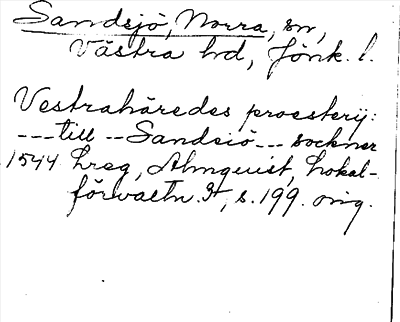 Sandsjö, Norra, sn,
Västra hd, Jönk. l.
Vestrahäredes proesterij:
---till--Sandsiö---sockner
1544 hreg, Almquist, Lokal-
förvaltn. 3, s. 199. orig.